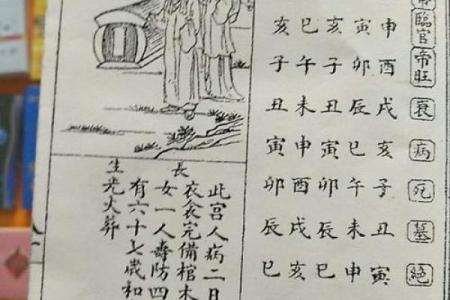 臨官 帝旺 衰 病 死 墓 絕
申酉戌亥子丑寅
寅卯辰巳午未申
亥子丑寅卯辰巳
巳午未申酉戌亥
亥子丑寅卯辰巳
此宫人病二日
長衣衾完備棺木
女一人壽防四
有六十七歲和
生光火葬